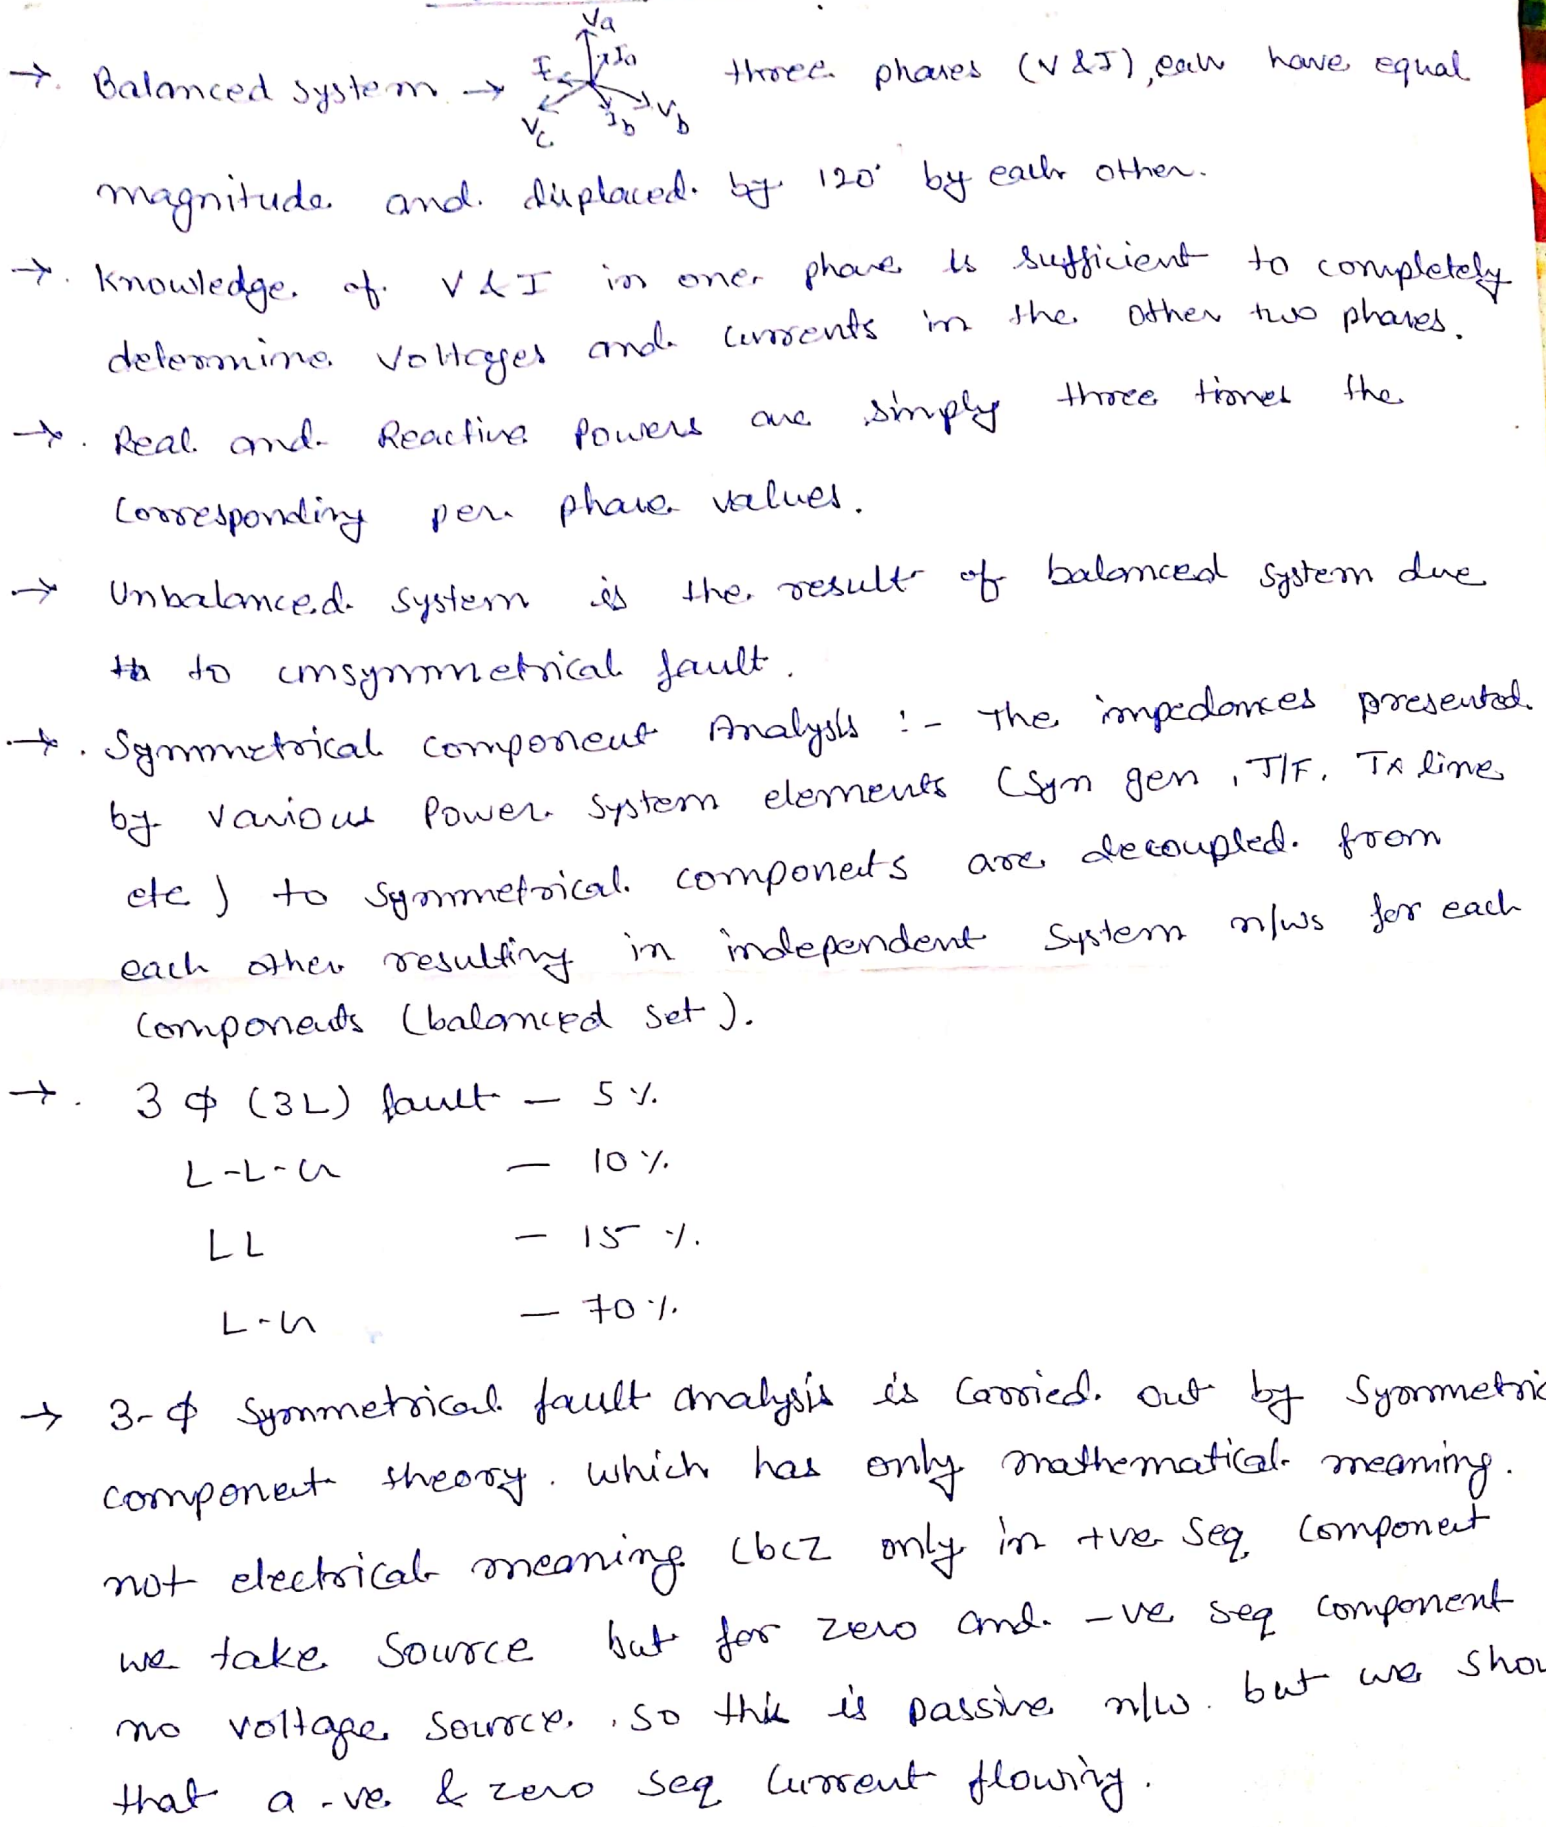 →. Balanced system → Va Ia Ic Vc Ib Vb three phases (V & I), each have equal
magnitude and displaced by 120° by each other.
→. Knowledge of V & I in one phase is sufficient to completely
determine voltages and currents in the other two phases.
→. Real and Reactive Powers are simply three times the
corresponding per phase values.
→ Unbalanced system is the result of balanced system due
to unsymmetrical fault.
→. Symmetrical component Analysis :- The impedances presented
by various Power System elements (Syn gen, T/F, Tx line
etc) to symmetrical components are decoupled from
each other resulting in independent system n/ws for each
components (balanced set).
→. 3 ϕ (3L) fault — 5 %.
L-L-G — 10 %.
LL — 15 %.
L-G — 70 %.
→ 3-ϕ Symmetrical fault analysis is carried out by Symmetric
component theory. which has only mathematical meaning.
not electrical meaning (bcz only in +ve seq component
we take source but for zero and -ve seq component
no voltage source. so this is passive n/w. but we show
that a -ve & zero seq current flowing.